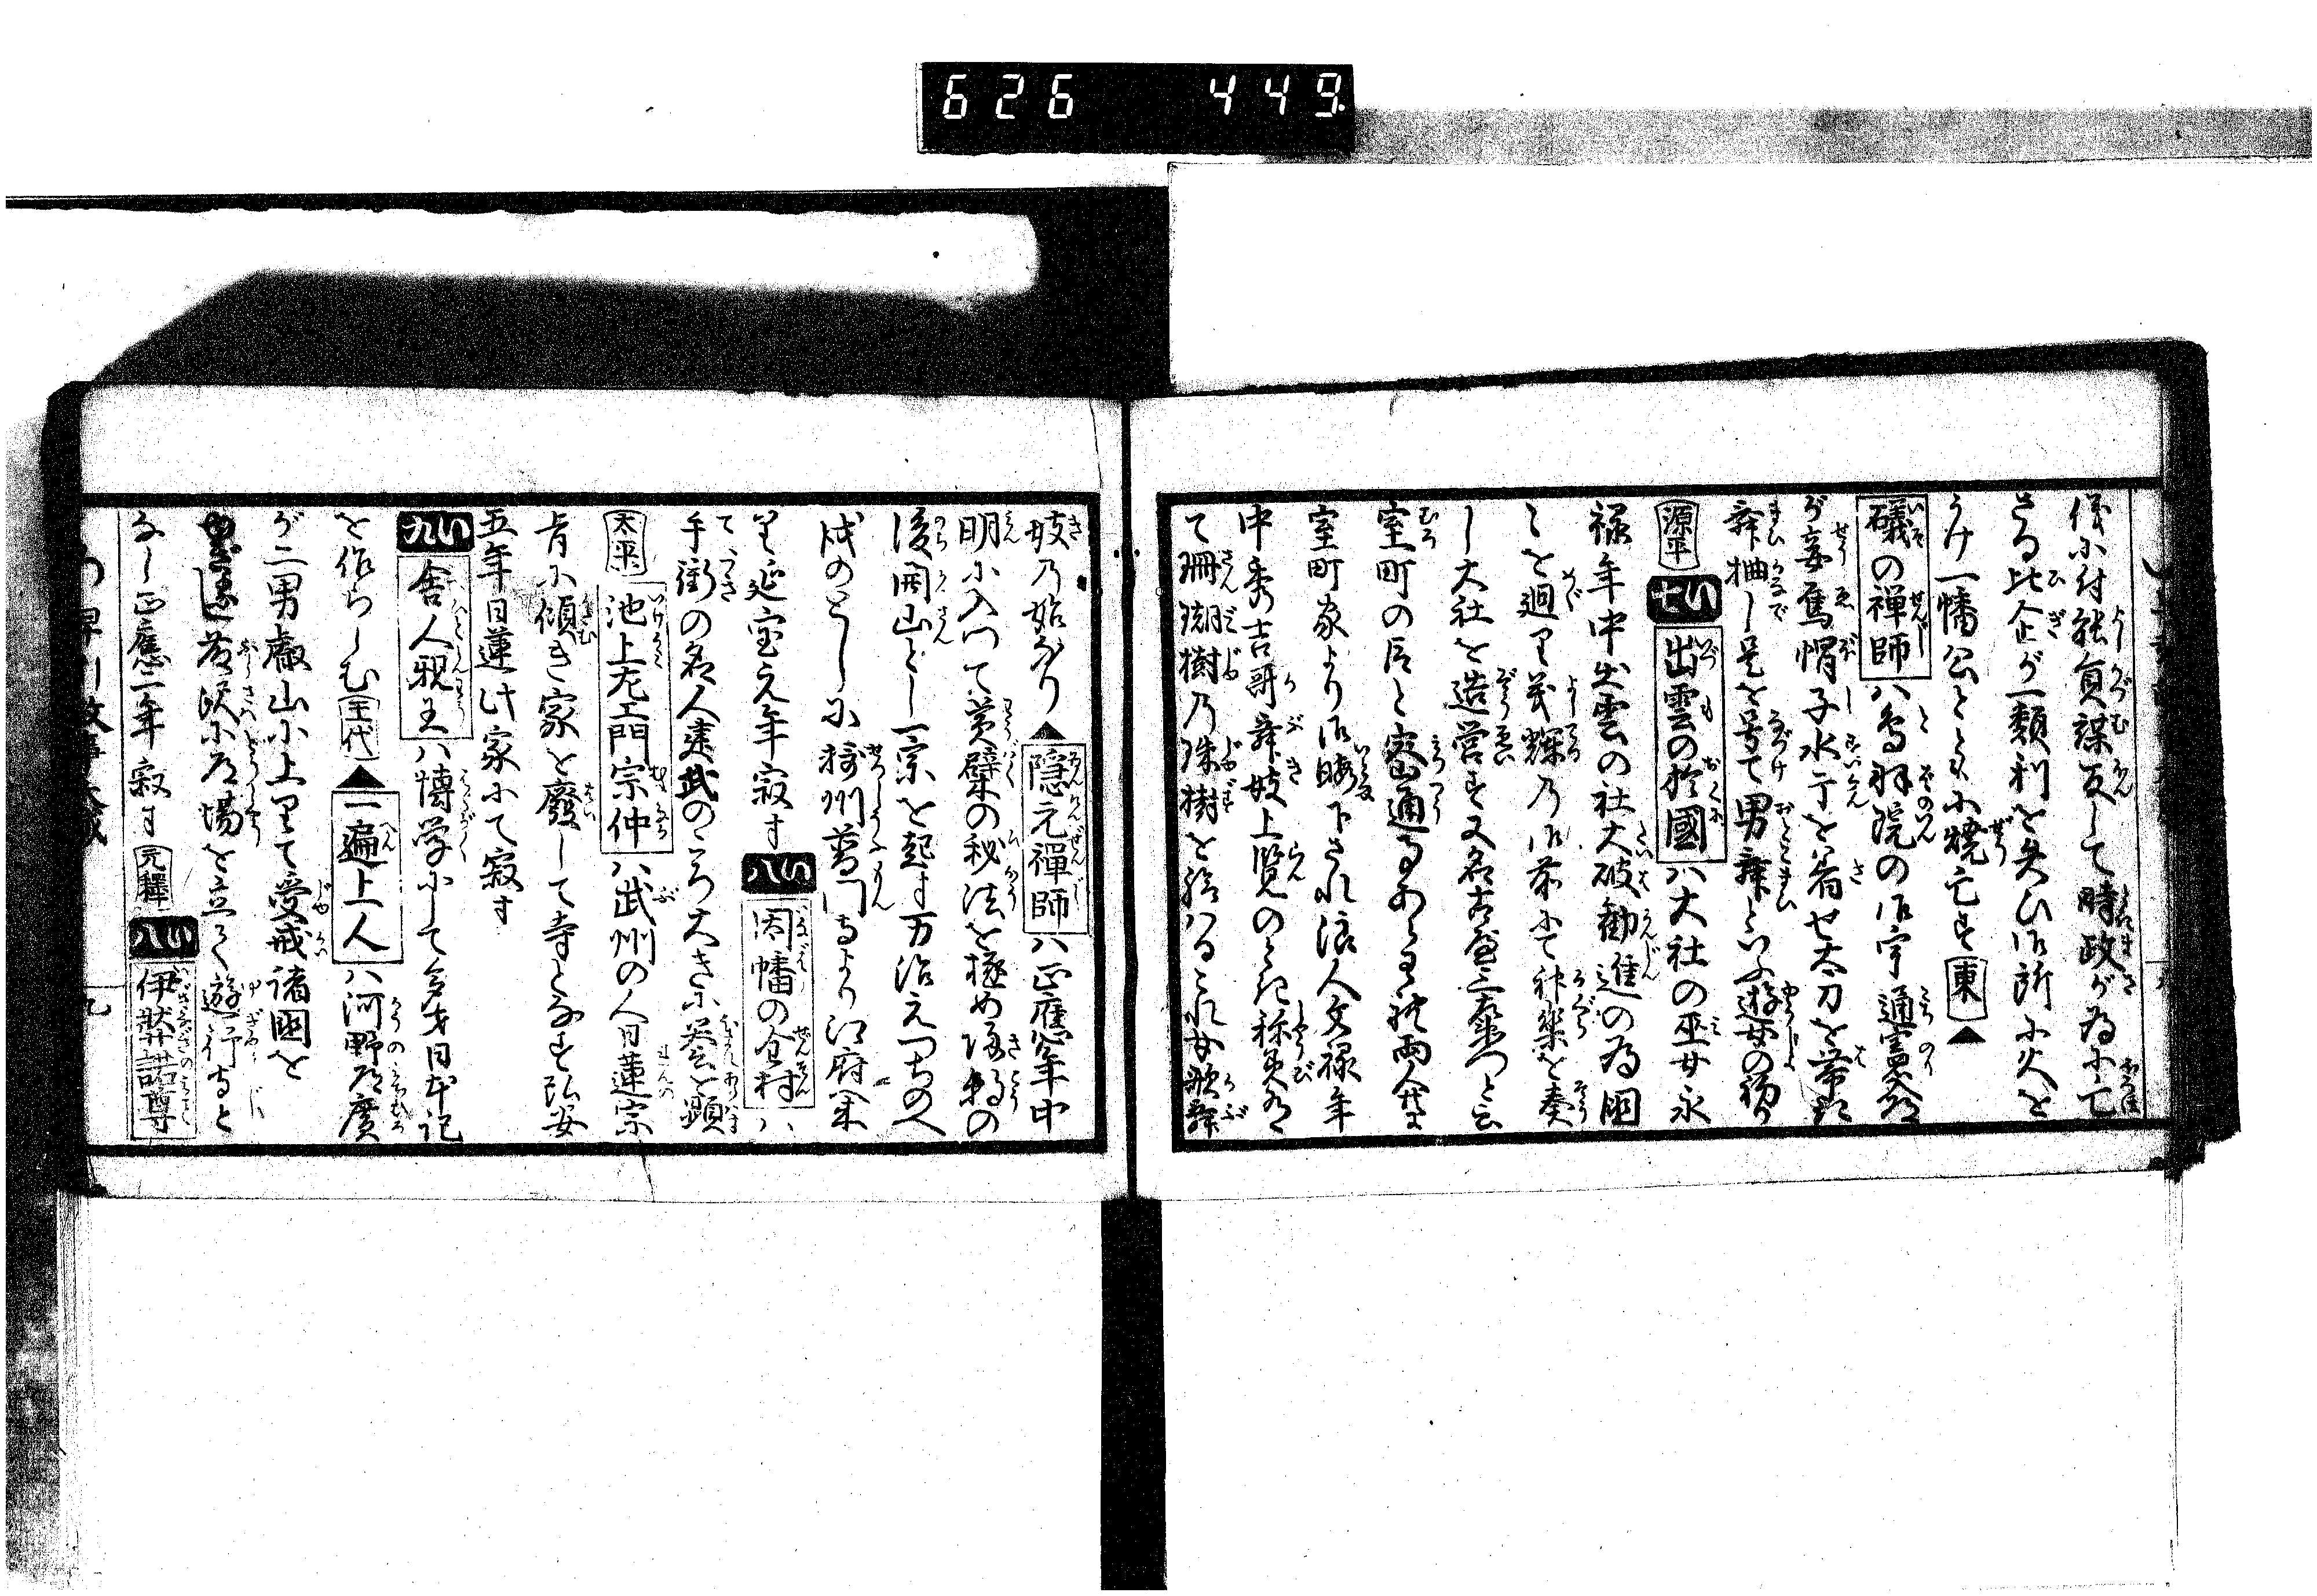 626 449
儀に付能員謀反して時政が為に亡
さる比企が一類利を失ひ御所に火を
うけ一幡公とともに焼亡す 東 ▲
礒の禅師 ハ鳥羽院の御宇通憲入道
が妾烏帽子水干を着せ太刀を帯
舞曲し是を号て男舞といふ遊女の初り
源平 い七 出雲の於國 ハ大社の巫女永
禄年中出雲の社大破勧進の為国
〻を廻り義輝乃御前にて神楽を奏
し大社を造営す又名古屋三左衛門と云
室町の臣と密通
室町家より御暇下され浪人文禄年
中秀吉哥舞妓上覧のとき称美有
て珊瑚樹乃珠樹を給ハるこれ女歌舞
妓乃始なり ▲ 隠元禅師 ハ正應年中
明に入つて黄檗の秘法を極め帰朝の
後開山とし一宗を起す万治元つちのへ
戌のとしに摂州普門寺より江府に来
り延宝元年寂す い八 因幡の全村 ハ
手術の名人建武のころ大きに誉を顕
太平 池上左エ門宗仲 ハ武州の人日蓮宗
旨に傾き家を廃して寺となす弘安
五年日蓮此家にて寂す
い九 舎人親王 ハ博学にして日本記
を作らしむ 王代 ▲ 一遍上人 ハ河野道廣
が二男叡山に上りて受戒諸国を
藤沢に道場を立て遊行寺と
なし正應二年寂す 元釋 い八 伊弉諾尊